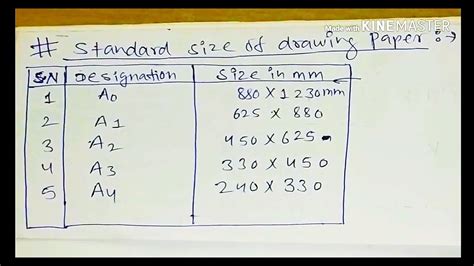 Made with KINEMASTER
# Standard size of drawing Paper :→
SN Designation size in mm
1 A0 880 X 1230mm
2 A1 625 X 880
3 A2 450 X 625
4 A3 330 X 450
5 A4 240 X 330